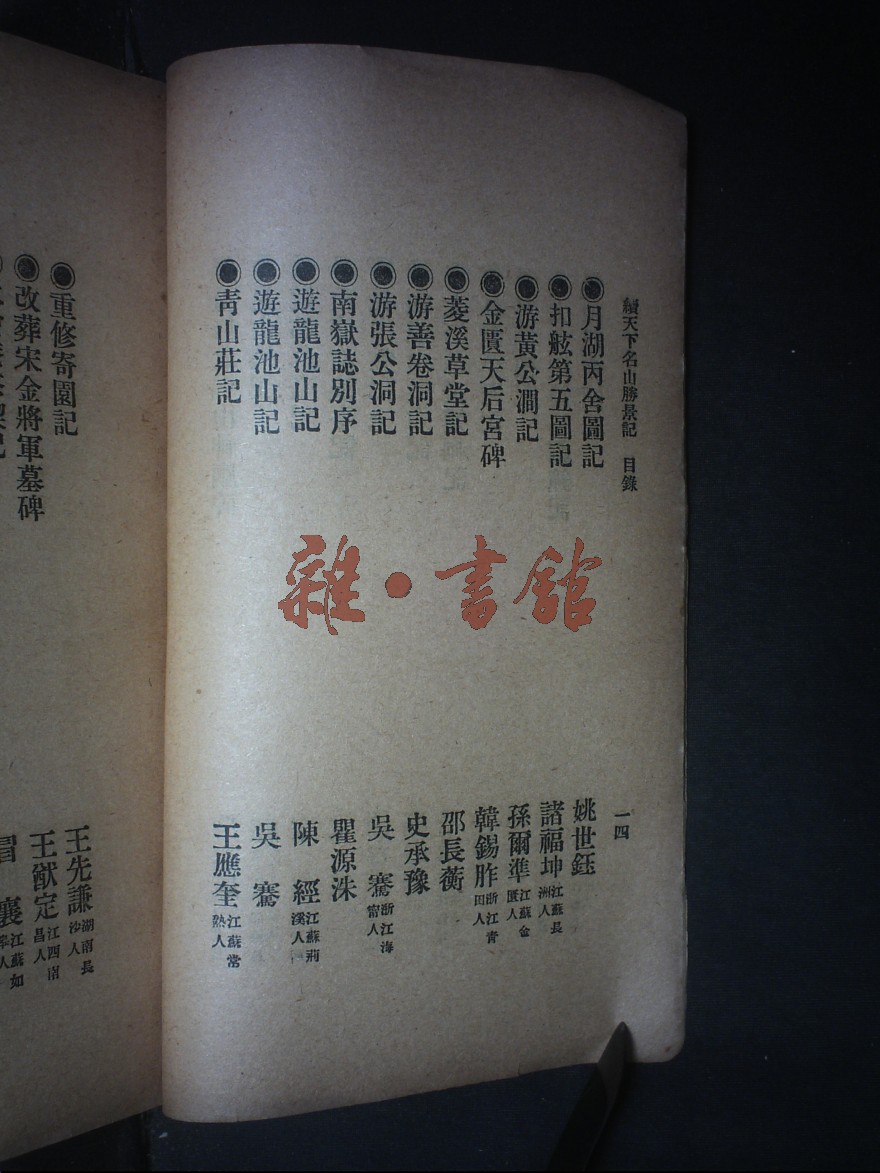 續天下名山勝景記　目錄　一四
●月湖丙舍圖記　姚世鈺
●扣舷第五圖記　諸福坤江蘇長洲人
●游黃公澗記　孫爾準江蘇金匱人
●金匱天后宮碑　韓錫胙浙江青田人
●菱溪草堂記　邵長蘅
●游善卷洞記　史承豫
●游張公洞記　吳騫浙江海甯人
●南嶽誌別序　瞿源洙
●遊龍池山記　陳經江蘇荊溪人
●遊龍池山記　吳騫
●青山莊記　王應奎江蘇常熟人
●重修寄園記　王先謙湖南長沙人
●改葬宋金將軍墓碑　王猷定江西南昌人
襄江蘇如
雜·書館